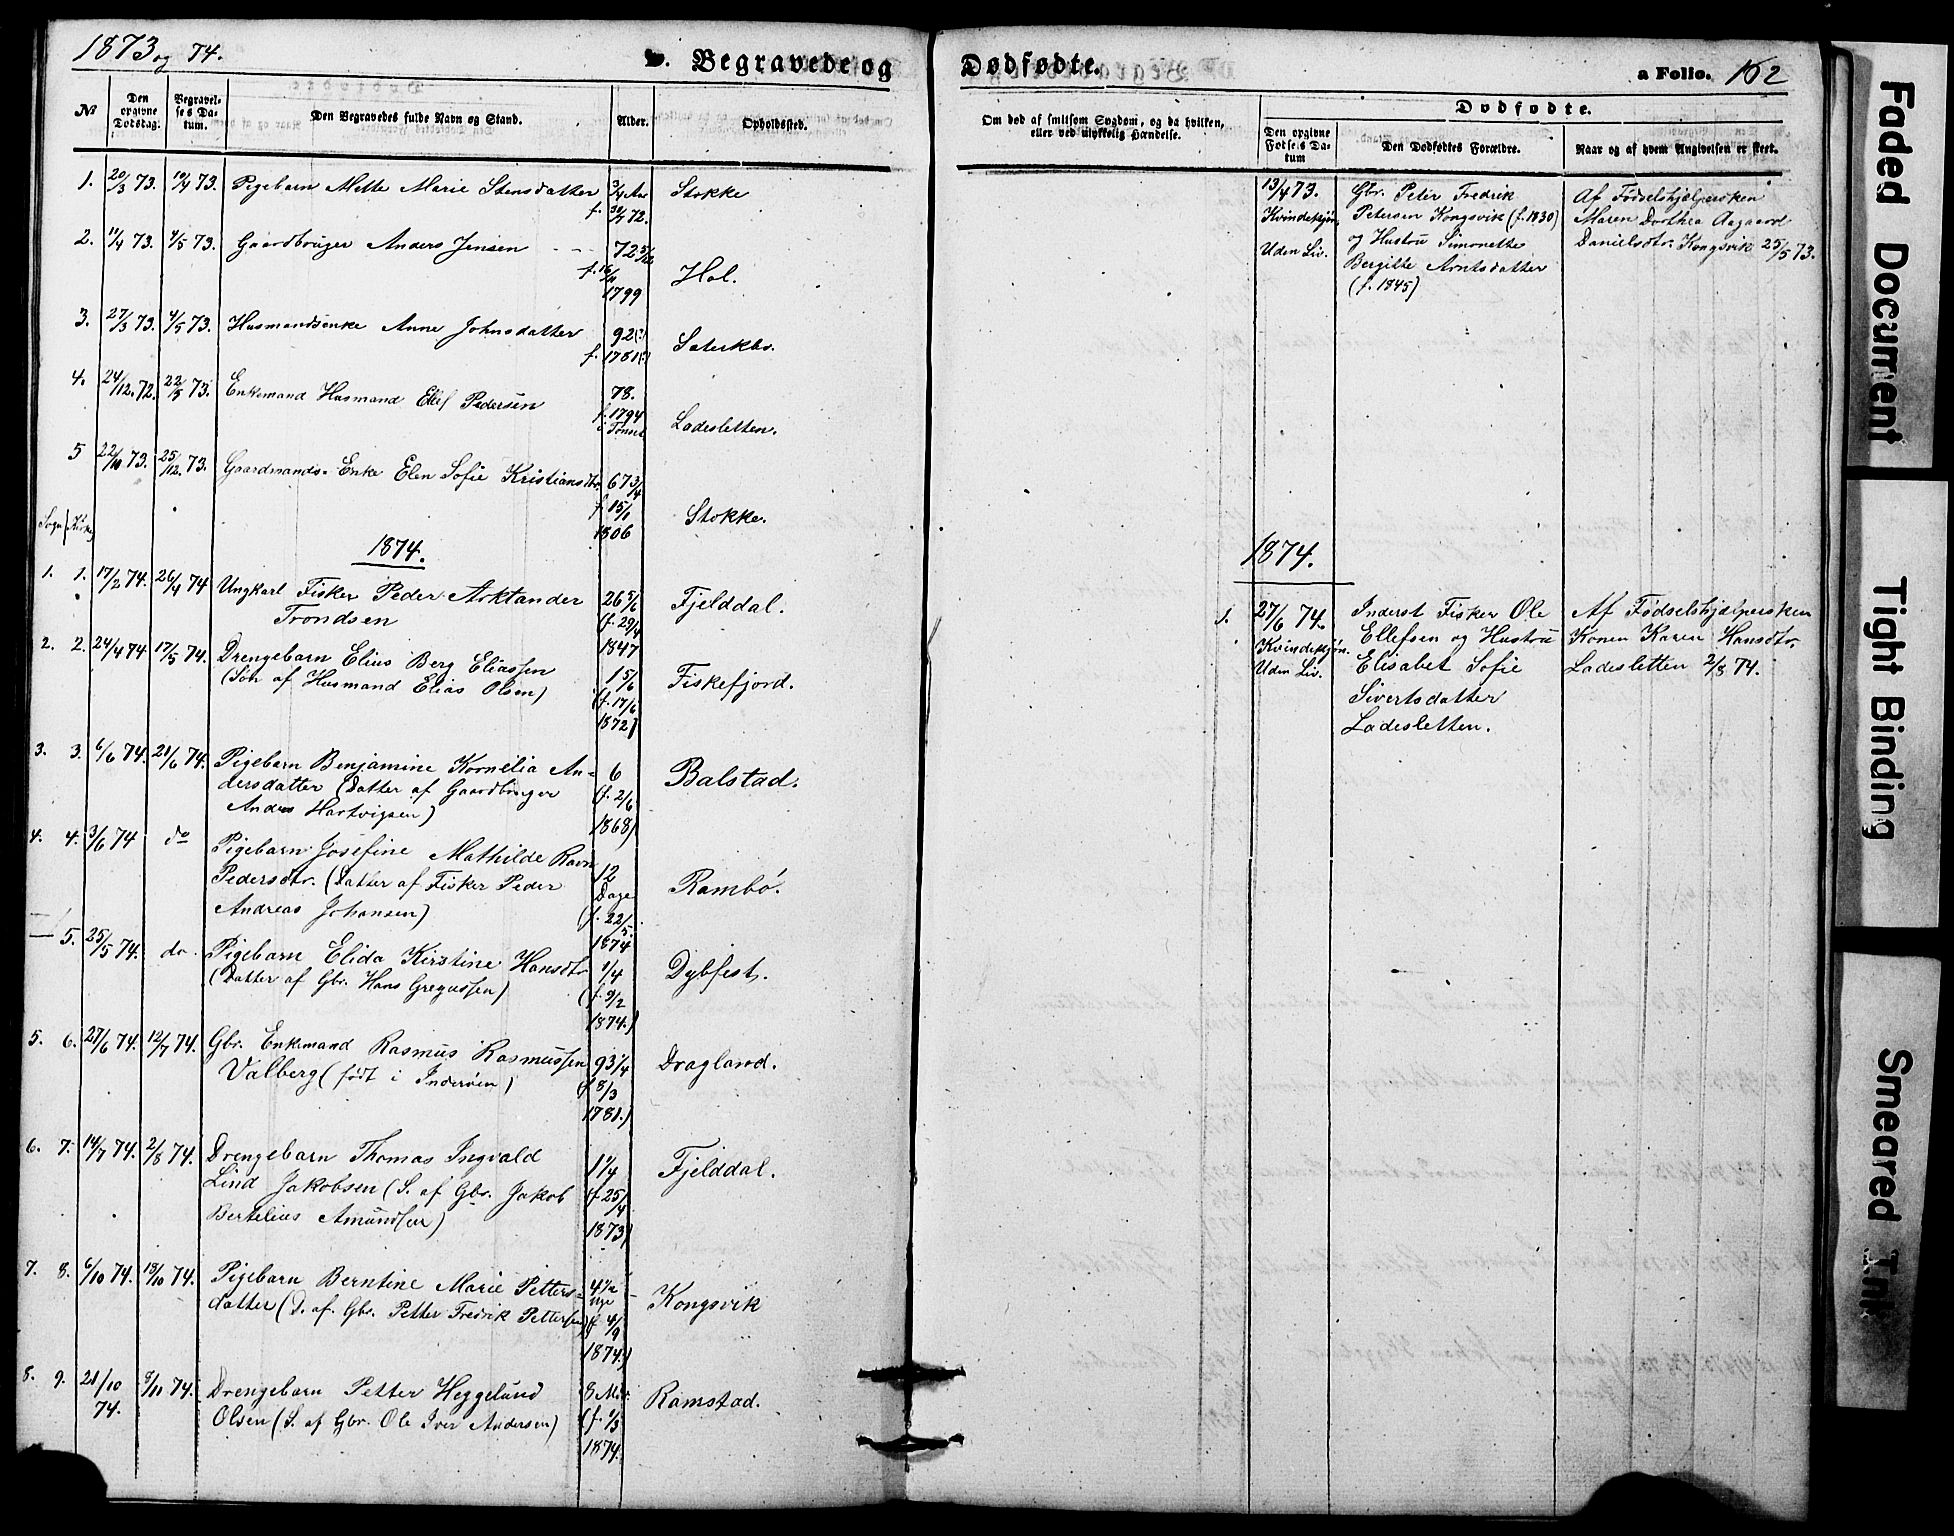 1873 og 74.
Begravede og Dødfødte.
a Folio. 162
№
Den opgivne Dødsdag.
Begravelses Datum.
Den Begravedes fulde Navn og Stand.
Alder.
Opholdssted.
Om død af smitsom Sygdom, og da hvilken, eller ved ulykkelig Hændelse.
Dødfødte.
Den opgivne Fødsels Datum
Den Dødfødtes Forældre.
Naar og af hvem Angivelsen er skeet.
1. 20/3 73. 10/4 73. Pigebarn Mette Marie Stensdatter 3/4 Aar Stokke
f. 30/7 72.
2. 11/4 73. 4/5 73. Gaardbruger Anders Jensen 72 5/12
f. 16/11 Hol.
1799
3. 27/3 73. 4/5 73. Husmandsenke Anne Johnsdatter 92(?)
f. 1781(?)
4. 24/12 72. 22/5 73. Enkemand Husmand Ellef Pedersen 78.
f. 1794 Ladesletten.
i Tønnes
5 22/10 73. 25/12 73. Gaardmands-Enke Elen Sofie Kristiansdtr. 67 3/4
f. 15/1 Stokke.
Sogn Kirke 1806
1874.
1. 1. 17/2 74. 26/4 74 Ungkarl Fisker Peder Arktander 26 5/6 Fjelddal.
Trondsen (f. 29/4
1847
2. 2. 24/4 74 17/5 74. Drengebarn Elius Berg Eliassen 1 5/6 Fiskefjord.
(Søn af Husmand Elias Olsen) (f. 17/6
1872)
3. 3. 6/6 74. 21/6 74. Pigebarn Benjamine Kornelia An- 6 Balstad.
dersdatter (Datter af Gaardbruger (f. 2/6
Anders Hartvigsen) 1868)
4. 4. 3/6 74 do Pigebarn Josefine Mathilde Ravn
Pedersdtr. (Datter af Fisker Peder 12 Dage Rambö.
Andreas Johansen) (f. 22/5
1874
— 5. 25/5 74. do Pigebarn Elida Kirstine Hansdtr. 1/4 Dybfest.
(Datter af Gbr. Hans Gregussen) (f. 9/2
1874.)
5. 6. 27/6 74. 12/7 74. Gbr. Enkemand Rasmus Rasmussen 93 1/4 Dragland.
Valberg (født i Inderøen) (f 8/3
1781.)
6. 7. 14/7 74. 2/8 74. Drengebarn Thomas Ingvald 1 1/4 Fjelddal.
Lind Jakobsen (S. af Gbr. Jakob (f. 25/4
Bertelius Amundsen) 1873)
7. 8. 6/10 74. 18/10 74. Pigebarn Berntine Marie Petters- 4 1/2 Uge Kongsvik
datter (D. af. Gbr. Petter Fredrik Pettersen) (f 4/9
1874.)
8. 9. 21/10 74. 8/11 74. Drengebarn Petter Heggelund 8 Mdr. Ramstad.
Olsen (S. af Gbr. Ole Iver Andersen) (f. 1/3
1874.
13/4 73. Gbr. Peter Fredrik Af Fødselshjælpersken
Kvindekjøn. Petersen Kongsvik (f. 1830) Maren Dorthea Aagaard
Uden Liv. og Hustru Simonette Danielsdtr. Kongsvik 25/5 73.
Bergitte Arntsdatter
(f. 1845)
1874.
1. 27/6 74. Inderst Fisker Ole Af Fødselshjælpersken
Kvindekjøn. Ellefsen og Hustru Konen Karen Hansdtr.
Uden Liv. Elisabet Sofie Ladesletten 2/8 74.
Sivertsdatter
Ladesletten.
Faded Document
Tight Binding
Smeared Ink